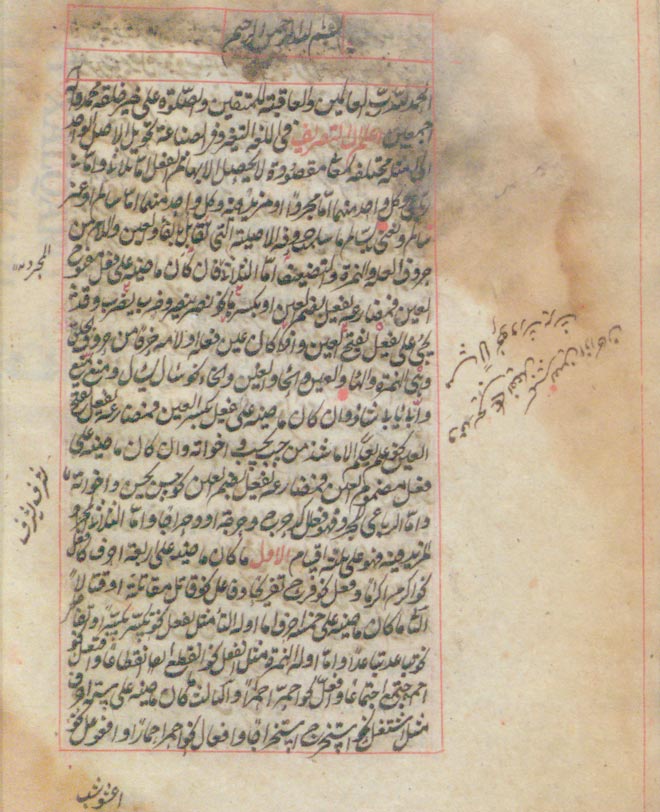 بسم الله الرحمن الرحيم
الحمد لله رب العالمين والعاقبة للمتقين والصلوة على خير خلقه محمد وآله
اجمعين اعلم ان التصريف في اللغة التغيير وفي الصناعة تحويل الاصل الواحد
الى امثلة مختلفة لمعان مقصودة لا يحصل الا بها ثم الفعل اما ثلاثي واما
رباعي وكل واحد منهما اما مجرد او مزيد فيه وكل واحد منهما اما سالم او غير
سالم ونعني بالسالم ما سلمت حروفه الاصلية التي تقابل بالفاء والعين واللام من
حروف العلة والهمزة والتضعيف اما الثلاثي فان كان ماضيه على فعل مفتوح
العين فمضارعه يفعل بضم العين او بكسرها نحو نصر ينصر وضرب يضرب وقد
يجئ على يفعل بفتح العين اذا كان عين فعله او لامه حرفا من حروف الحلق
وهي الهمزة والهاء والعين والحاء والغين والخاء نحو سال يسال ومنع يمنع
وابى يابى شاذ وان كان ماضيه على فعل بكسر العين فمضارعه يفعل بفتح
العين نحو علم يعلم الا ما شذ من حسب يحسب واخواته وان كان ماضيه على
فعل مضموم العين فمضارعه يفعل بضم العين نحو حسن يحسن واخواته
واما الرباعي المجرد فهو فعلل كدحرج دحرجة ودحراجا واما الثلاثي
المزيد فيه فهو على ثلثة اقسام الاول ما كان ماضيه على اربعة احرف كافعل
نحو اكرم اكراما وفعل نحو فرح تفريحا وفاعل نحو قاتل مقاتلة وقتالا
الثاني ما كان ماضيه على خمسة احرف اما اوله التاء مثل تفعل نحو تكسر تكسرا وتفاعل
نحو تباعد تباعدا واما اوله الهمزة مثل انفعل نحو انقطع انقطاعا وافتعل نحو
اجتمع اجتماعا وافعل نحو احمر احمرارا والثالث ما كان ماضيه على ستة احرف
مثل استفعل نحو استخرج استخراجا وافعال نحو احمار احميرارا وافعوعل نحو
المجرد
اعشوشب